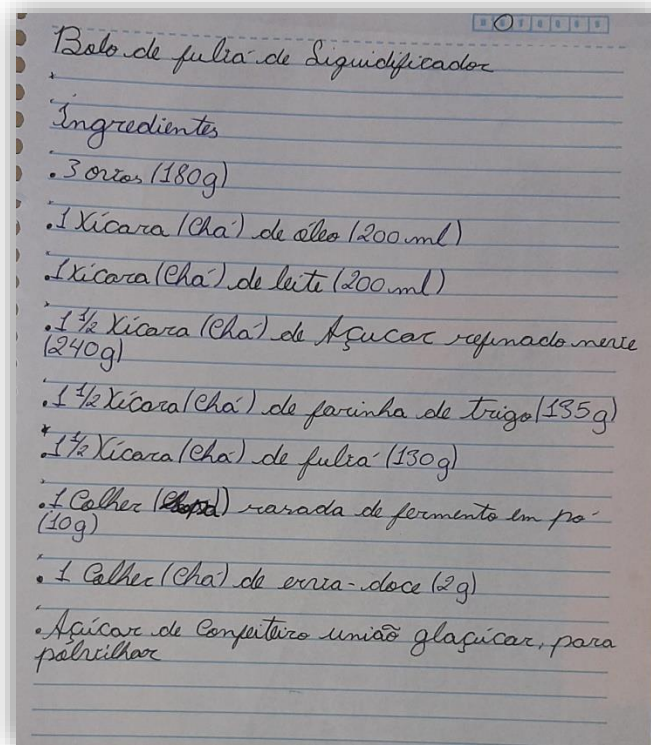 Bolo de fubá de Liquidificador
Ingredientes
. 3 ovos (180g)
. 1 Xícara (Chá) de óleo (200 ml)
. 1 xícara (Chá) de leite (200 ml)
. 1 1/2 Xícara (Chá) de Açucar refinado neve
(240g)
. 1 1/2 Xícara (Chá) de farinha de trigo (135g)
. 1 1/2 Xícara (Chá) de fubá (130g)
. 1 Colher () rasada de fermento em pó
(10g)
. 1 Colher (Chá) de erva-doce (2g)
. Açúcar de Confeiteiro união glaçúcar, para
polvilhar